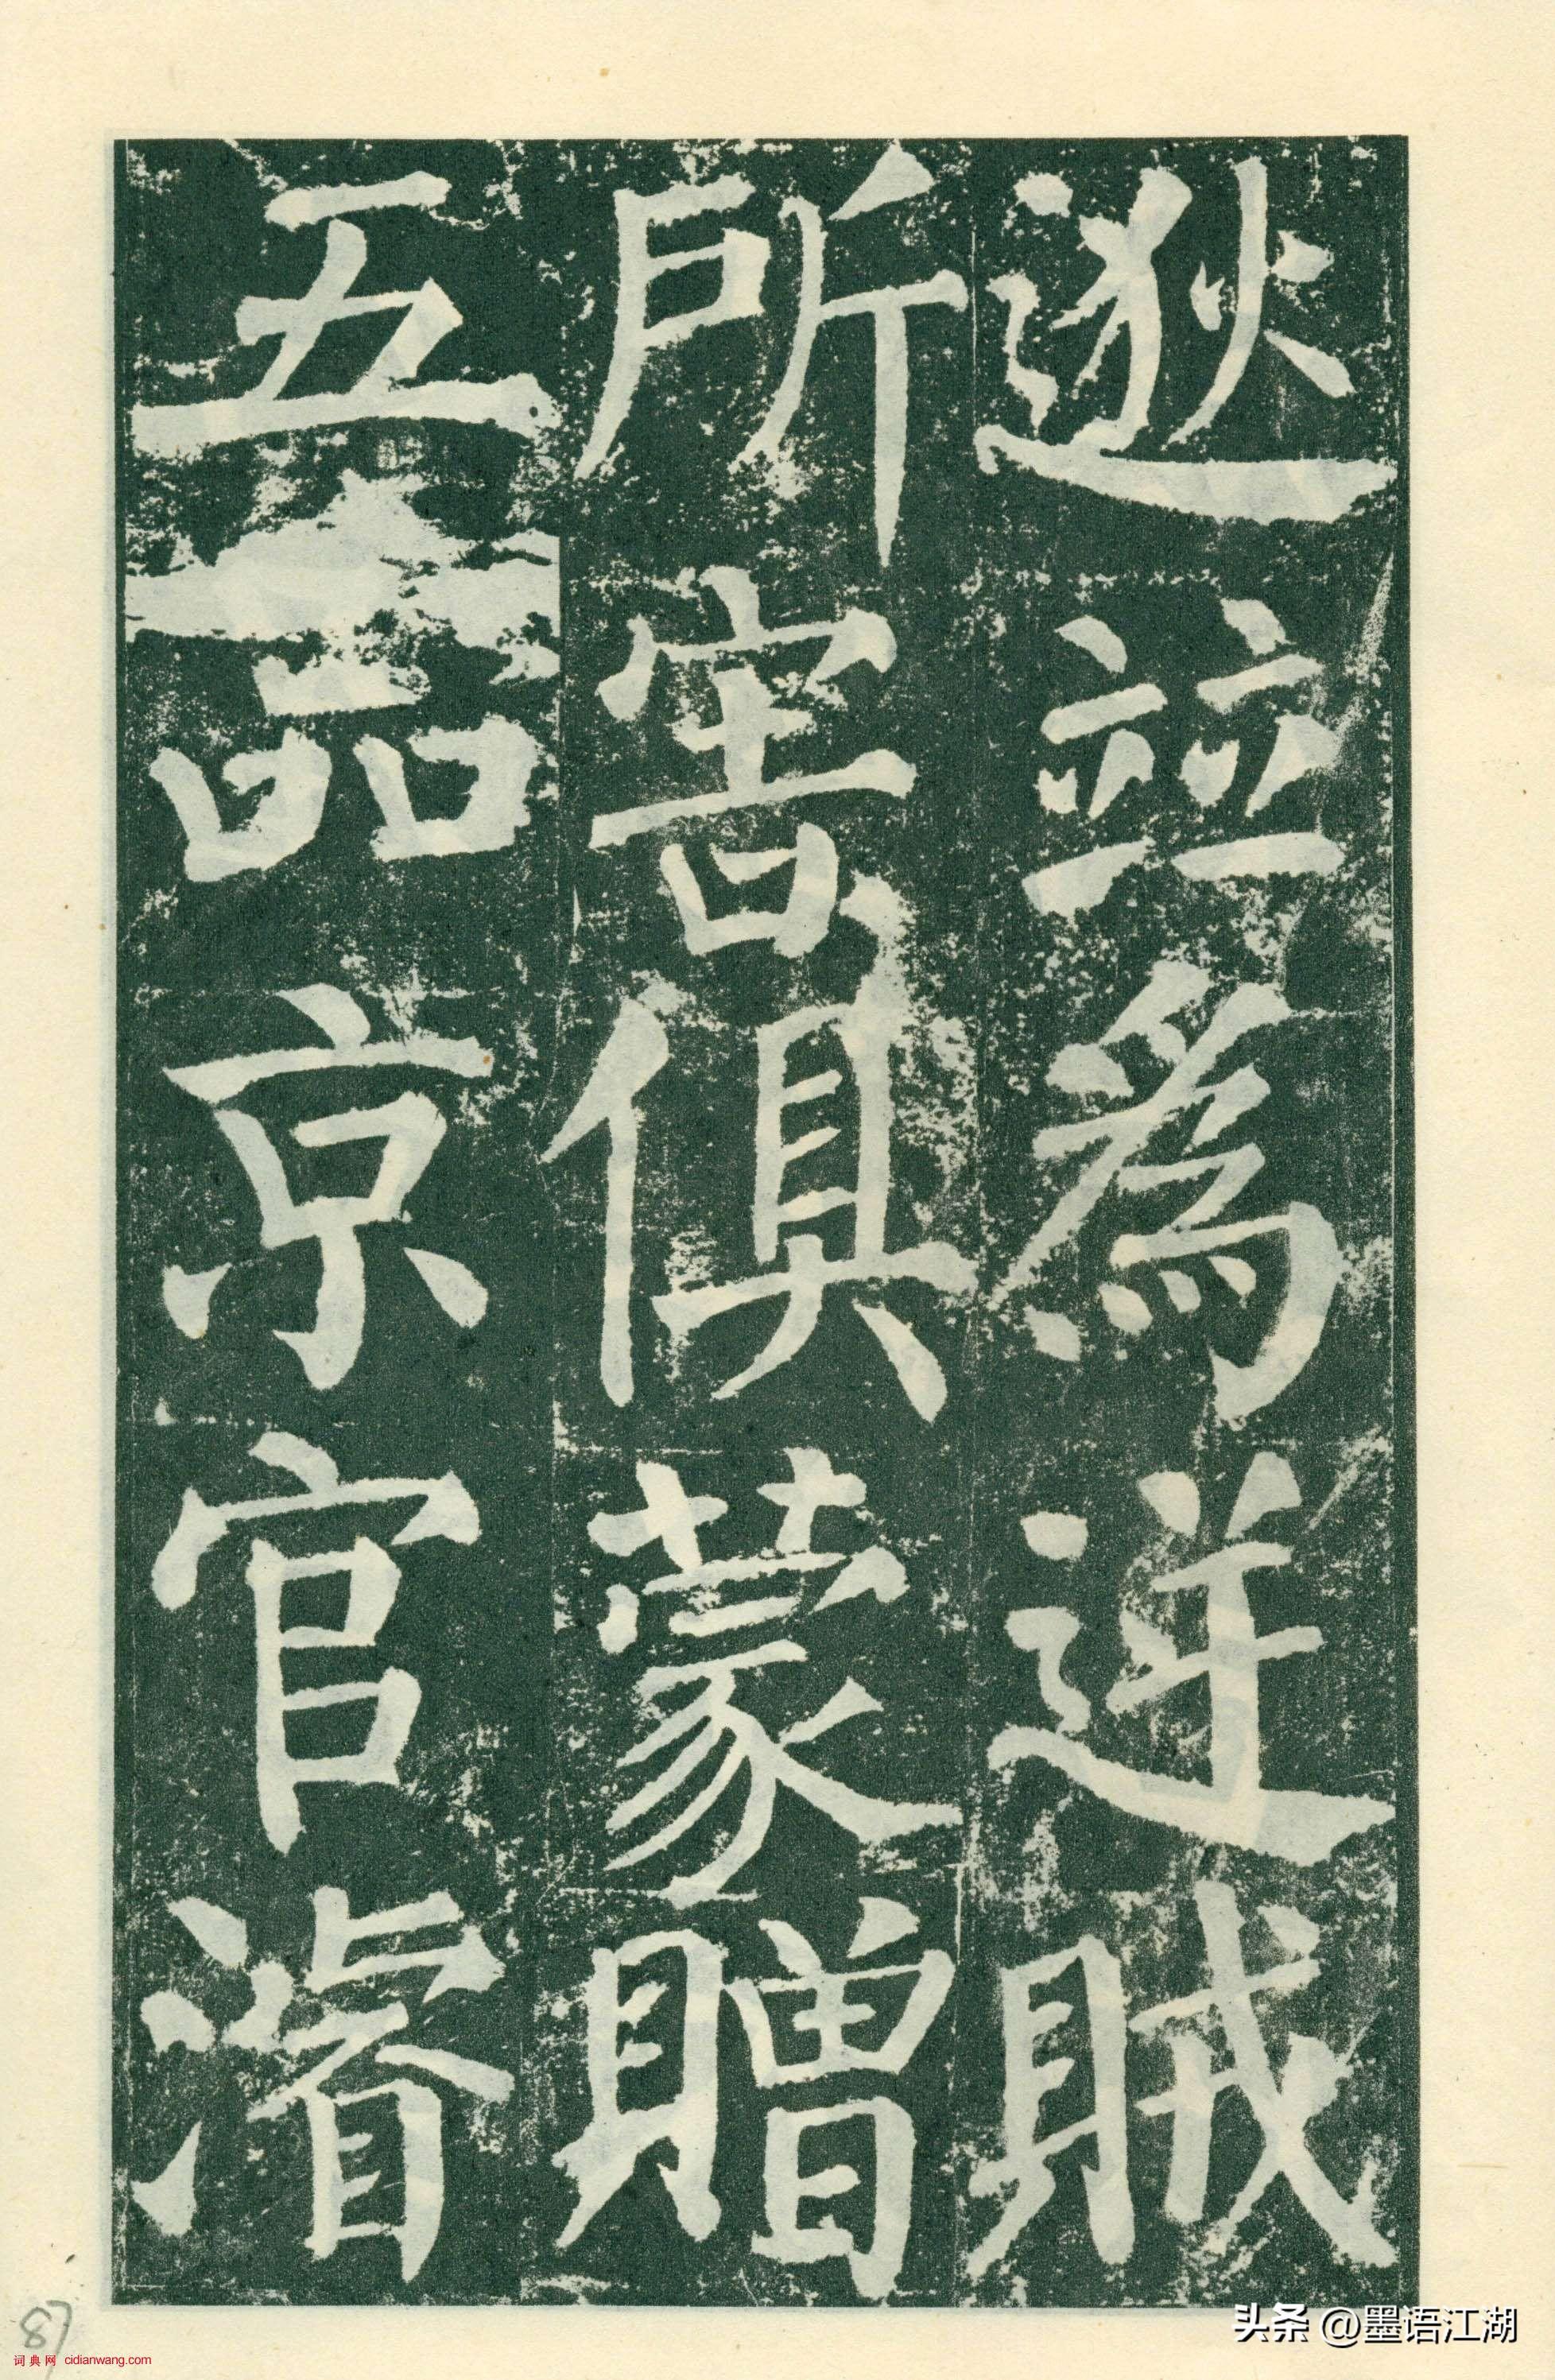 逖並為逆賊
所害俱蒙贈
五品京官濬
87
词典网 cidianwang.com
头条 @墨语江湖